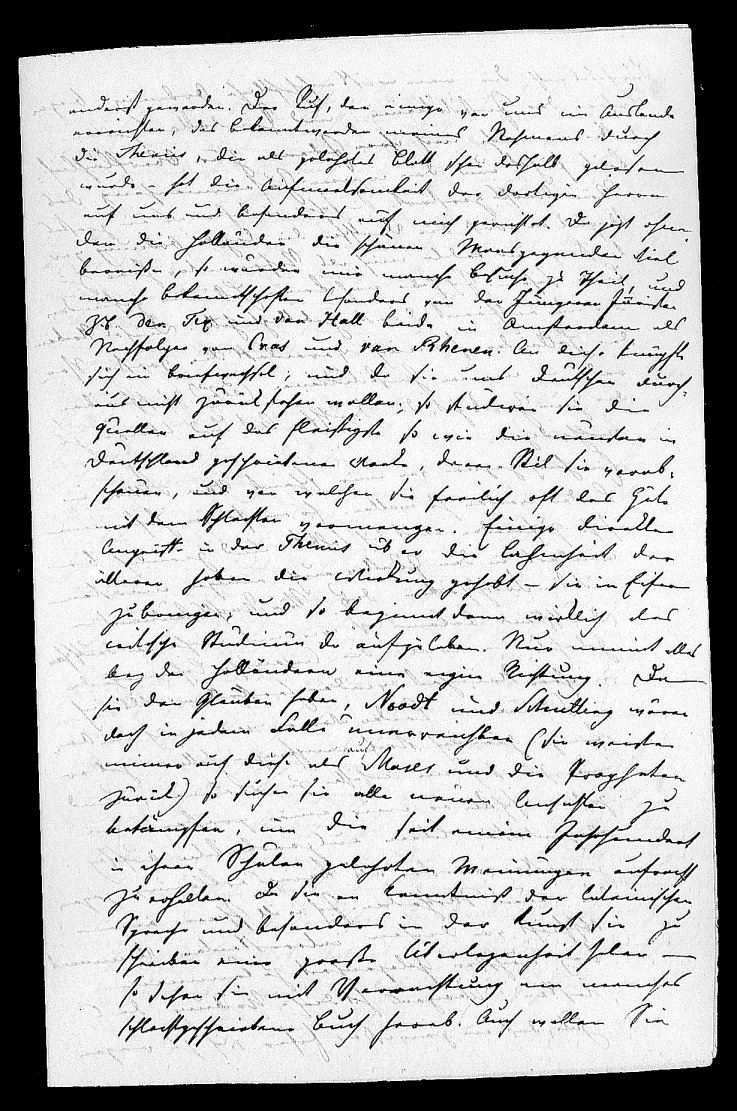 anders geworden. Der Ruf, den einige von uns im Auslande
erreichten, das bekanntwerden meines Nahmens durch
die Themis, die als gelehrtes Blatt schon deshalb gelesen
wurde – hat die Aufmerksamkeit der dortigen Herrn
auf uns und besonders auf mich gerichtet. Da jetzt ohne-
dem die Holländer die schönen Maasgegenden viel
bereisen, so wurden mir manche Besuche zu Theil, und
manche bekantschaften besonders von den Jüngeren Juristen
z.b. den Tex und van Hall beide in Amsterdam als
Nachfolger von Cras und van Rhenen. An diese knüpfte
sich ein briefwechsel; und da sie uns Deutschen durch-
aus nicht zurück stehen wollen, so studiren sie die
Quellen auf das fleissigste so wie die neusten in
Deutschland geschriebene Werke, deren Stil sie verab-
scheuen, und von welchen sie freilich oft das Gute
mit dem Schlechten vermengen. Einige direkten
Angriffe in der Themis über die
älteren haben die Wirkung gehabt – sie in Eifer
zu bringen, und so beginnt denn wirklich das
critische Studium da aufzuleben. Nur nimmt alles
bey den Holländern eine eigne Richtung. Da
sie den Glauben haben, Noodt und Schulting wären
doch in jedem Falle unerreichbar (sie weisen
immer auf diese als auf Moses und die Propheten
zurück) so suchen sie alle neuen Ansichten zu
bekämpfen, um die seit einem Jahrhundert
in ihren Schulen gelehrten Meinungen aufrecht
zu erhalten. Da sie an Kenntniß der lateinischen
Sprache und besonders in der Kunst sie zu
schreiben eine große Überlegenheit haben –
so sehen sie mit Verachtung auf manches
schlechtgeschriebene Buch herab. Auch wollen Sie